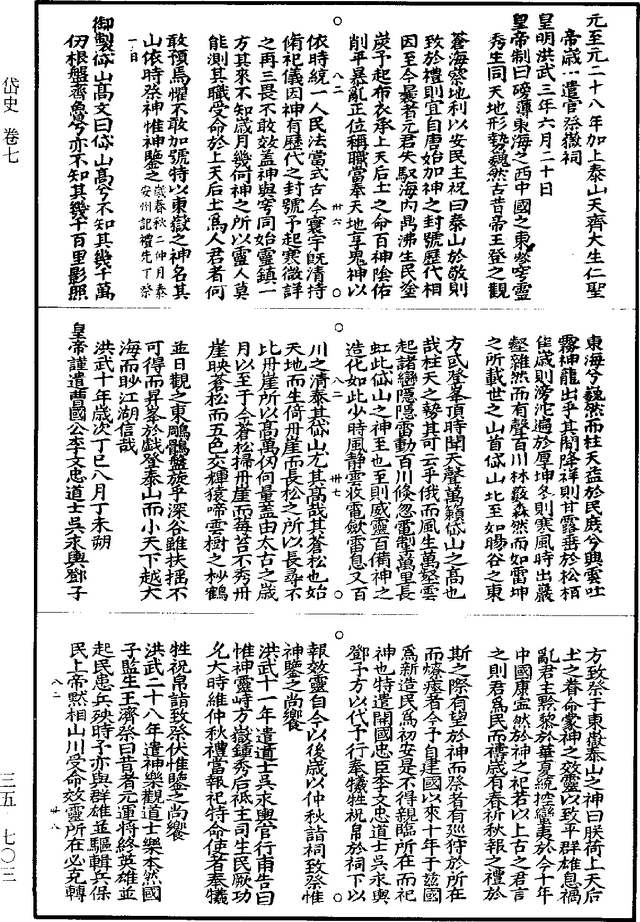 岱史 卷七
元至元二十八年加上泰山天齊大生仁聖
帝歲一遣官祭徵祠
皇明洪武三年六月二十日
皇帝制曰磅薄東海之西中國之東參穹靈
秀生同天地形勢巍然古昔帝王登之觀
蒼海察地利以安民主祝曰泰山於敬則
致於禮則宜自唐始加神之封號歷代相
因至今曩者元君失馭海內鼎沸生民塗
炭予起布衣承上天后土之命百神陰佑
削平暴亂正位稱職當奉天地享鬼神以
依時統一人民法當式古今寰宇既清特
脩祀儀因神有歷代之封號予起寒微詳
之再三畏不敢效蓋神與穹同始靈鎮一
方其來不知歲月幾何神之所以靈人莫
能測其職受命於上天后土為人君者何
敢預焉懼不敢加號特以東嶽之神名其
山依時祭神惟神鑒之歲春秋二仲月泰安州記禮先丁祭一日
御製岱山高文曰岱山高兮不知其幾千萬
仞根盤齊魯兮亦不知其幾千百里影照
東海兮巍然而柱天益於民庶兮興雲吐
霧神龍出乎其間降祥則甘露垂於松栢
佳歲則滂沱遍於厚坤冬則寒風時出巖
壑雜然而有聲百川林藪森然而如雷坤
之所載世之山首岱山北至如暘谷之東
方或登峯頂時聞天聲萬籟岱山之高也
哉柱天之勢其可云乎俄而風生萬壑雲
起諸巒隱隱雷動百川倏忽電掣萬里長
虹此岱山之神至也至則威靈百備神之
造化如此少時風靜雲收電斂雷息又百
川之清泰其岱山尤其高哉其蒼松也始
天地而生倚丹崖而長松之所以長尋不
比丹崖所以高萬仞何量蓋由太古之歲
月以至于今蒼松掃丹崖而莓苔不秀丹
崖映蒼松而五色交輝猿啼雲樹之杪鶴
並日觀之東鵰鶻盤旋乎深谷雖扶搖不
可得而昇峯於戲登泰山而小天下越大
海而眇江湖信哉
洪武十年歲次丁巳八月丁未朔
皇帝謹遣曹國公李文忠道士吳永輿鄧子
方致祭于東嶽泰山之神曰朕荷上天后
土之眷命蒙神之效靈以致平群雄息禍
亂君主黔黎於華夏統控蠻夷於今十年
中國康寍然於神之祀若以上古之君言
之則君為民而禱歲有春祈秋報之禮於
斯之際有望於神而祭者有巡狩於所在
而燎瘞者今予自建國以來十年于茲國
為新造民為初安是不得親臨所在而祀
神也特遣開國忠臣李文忠道士吳永輿
鄧子方以代予行奉犧牲祝帛於祠下以
報效靈自今以後歲以仲秋詣祠致祭惟
神鑒之尚饗
洪武十一年遣道士吳永輿官行甫告曰
惟神靈峙方嶽鍾秀后祗主司生民厥功
允大時維仲秋禮當報祀特命使者奉犧
牲祝帛請致祭伏惟鑒之尚饗
洪武二十八年遣神樂觀道士樂本然國
子監生王濟祭曰昔者元運將終英雄並
起民患兵殃時予亦與群雄並驅輯兵保
民上帝默相山川受命效靈所在必克轉
八二 卅六
八二 卅七
八二 卅八
三五 七〇三